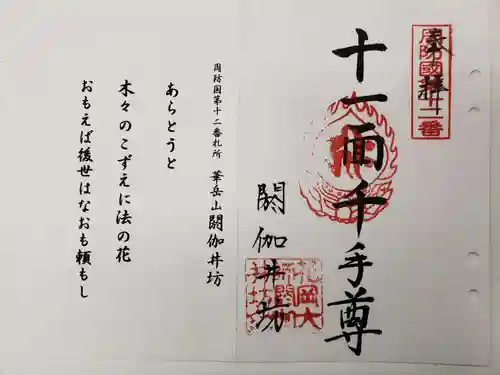 奉拝
周防國十二番
十一面千手尊
閼伽井坊
周防国第十二番札所 華岳山閼伽井坊
あらとうと
木々のこずえに法の花
おもえば後世はなおも頼もし